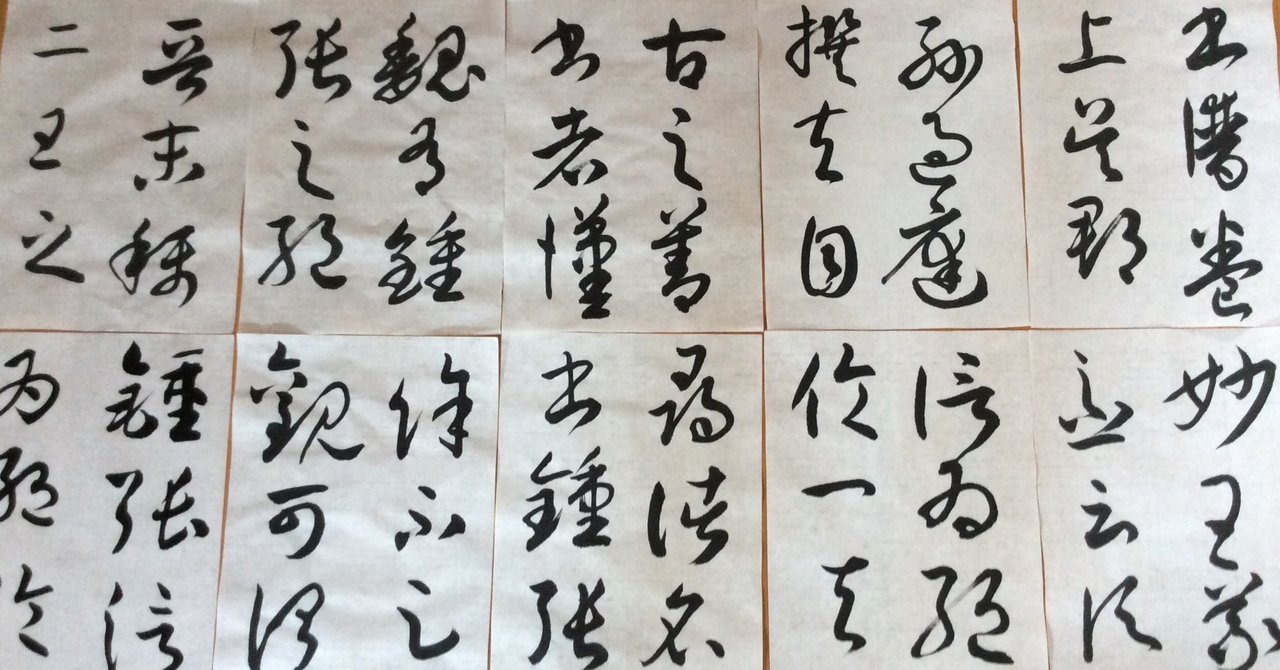 書譜卷
上吳郡
孫過庭
撰夫自
古之善
書者漢
魏有鍾
張之絕
晉末稱
二王之
妙王羲
之云頃
信為絕
倫一夫
尋諸名
書鍾張
餘不足
觀可謂
鍾張信
為絕倫